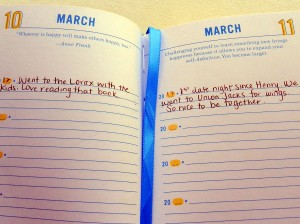 10 MARCH
"Whoever is happy will make others happy, too."
—Anne Frank
Went to the Lorax with the
kids. Love reading that book
20
20
20
MARCH 11
Challenging yourself to learn something new brings
happiness because it allows you to expand your
self-definition. You become larger.
20 12 • 1st date night since Henry. We
went to Union Jacks for wings
So nice to be together.
20
20
20